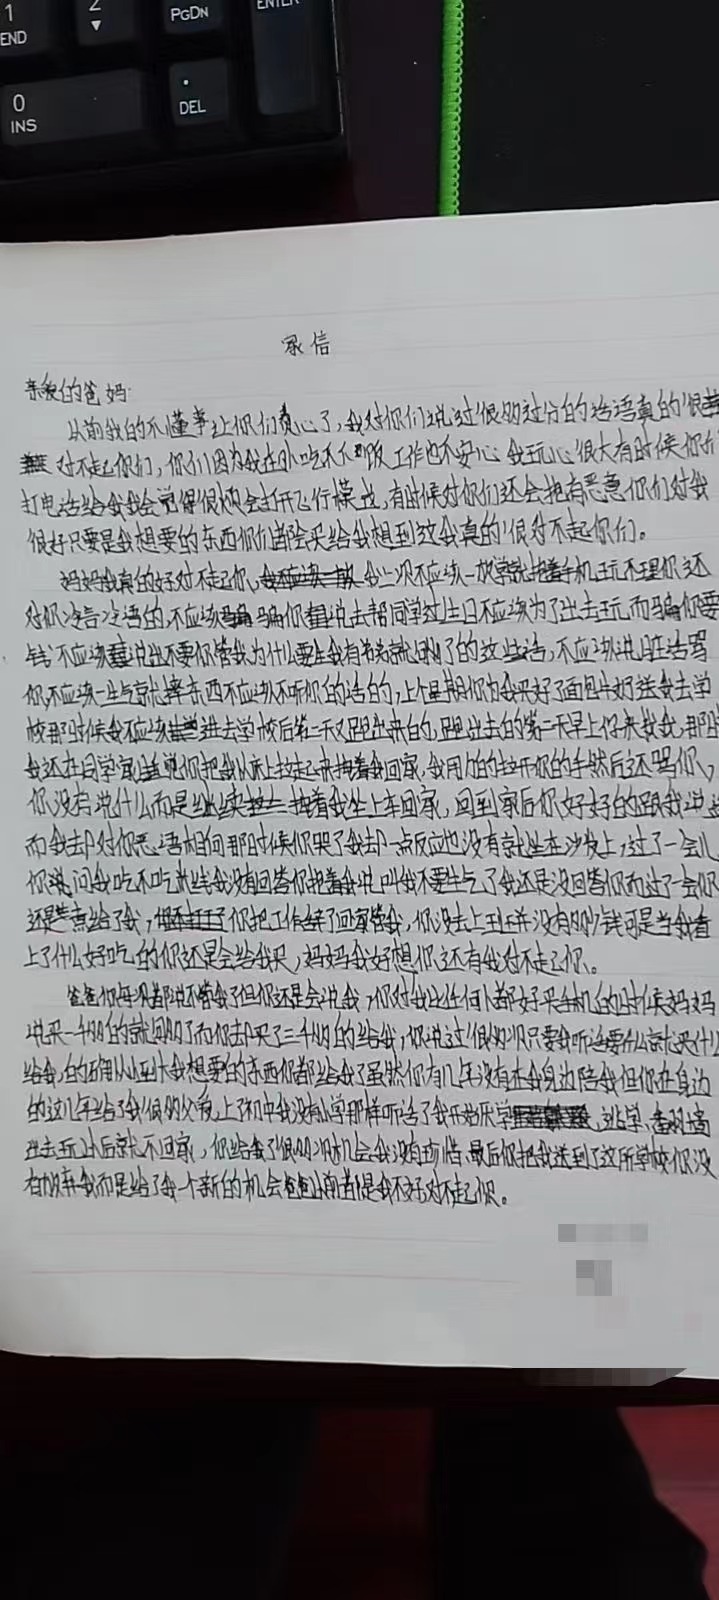 1
END
2
▼
PGDN
ENTER
0
INS
.
DEL
家信
亲爱的爸妈:
以前我的不懂事让你们费心了,我对你们说过很多过分的话语真的很
对不起你们,你们因为我在外吃不下饭工作也不安心我玩心很大有时候你们
打电话给我我会觉得很烦会打开飞行模式,有时候对你们还会抱有恶意你们对我
很好只要是我想要的东西你们都会买给我想到这我真的很对不起你们。
妈妈我真的好对不起你,我上次不应该一放学就抱着手机玩不理你还
对你冷言冷语的,不应该骗你说去帮同学过生日不应该为了出去玩而骗你要
钱不应该说出不要你管我为什么要生我有爸爸就够了的这些话,不应该说脏话骂
你不应该一生气就摔东西不应该不听你的话的,上个星期你为我买好了面包牛奶送我去学
校那时候我不应该进去学校后第二天又跑出来的,跑出去的第二天早上你来找我,那时
我还在同学家你把我从床上拉起来回家,我用力的拉开你的手然后还骂你,
你没有说什么而是继续拉着我坐上车回家,回到家后你好好的跟我说话
而我却对你恶语相向那时候你哭了我却一点反应也没有就坐在沙发上,过了一会儿
你问我吃不吃我没有回答你抱着我说叫我不要生气了我还是没回答你而过了一会你
还是煮给了我,你把工作辞了回家管我,你没去上班并没有多少钱可是当我看
上了什么好吃的你还是会给我买,妈妈我好想你还有我对不起你。
爸爸你每次都说不管我了但你还是会说我,你对我比任何人都好买手机的时候妈妈
说买一千多的就够了而你却买了三千多的给我,你说过很多次只要我听话要什么就买什么
给我,的确从小到大我想要的东西你都给我了虽然你有几年没有在我身边陪我但你在身边
的这几年给了我很多父爱,上了初中我没有小学那样听话了我开始厌学,逃学,翻墙
出去玩以后就不回家,你给我了很多次机会我没有珍惜,最后你把我送到了这所学校你没
有放弃我而是给了我一个新的机会爸爸以前都是我不好对不起你。